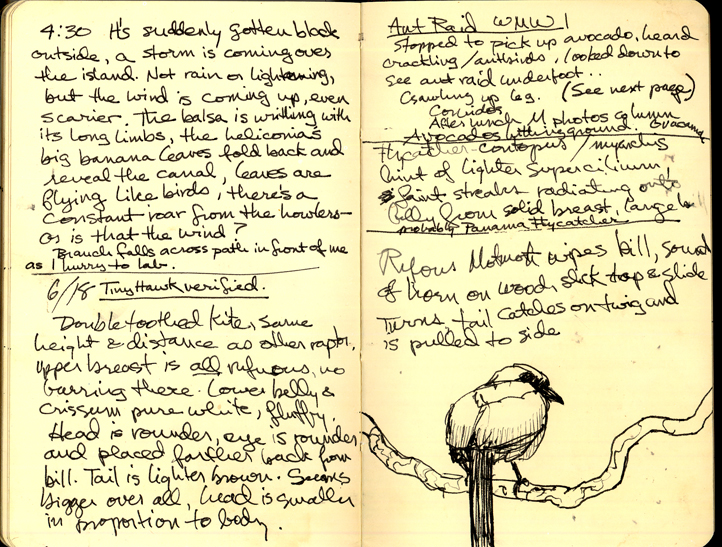 4:30 It's suddenly gotten black
outside, a storm is coming over
the island. Not rain or lightning,
but the wind is coming up, even
scarier. The balsa is writhing with
its long limbs, the heliconia's
big banana leaves fold back and
reveal the canal, leaves are
flying like birds, there's a
constant roar from the howlers—
or is that the wind?
Branch falls across path in front of me
as I hurry to lab.
6/18 Tiny Hawk verified.
Double toothed kite, same
height & distance as other raptor,
upper breast is all rufous, no
barring there. Lower belly &
crissum pure white, fluffy.
Head is rounder, eye is rounder
and placed farther back from
bill. Tail is lighter brown. Seems
bigger over all, head is smaller
in proportion to body.
Ant Raid WMW 1
Stopped to pick up avocado, heard
crackling/antbirds, looked down to
see ant raid underfoot..
Crawling up leg. (See next page)
After lunch M photos column
Avocados littering ground
flycatcher - contopus/myarchus
hint of lighter supercilium,
faint streaks radiating onto
belly from solid breast, large
probably Panama flycatcher
Rufous Motmot wipes bill, sound
of horn on wood, slick & glide
Turns, tail catches on twig and
is pulled to side